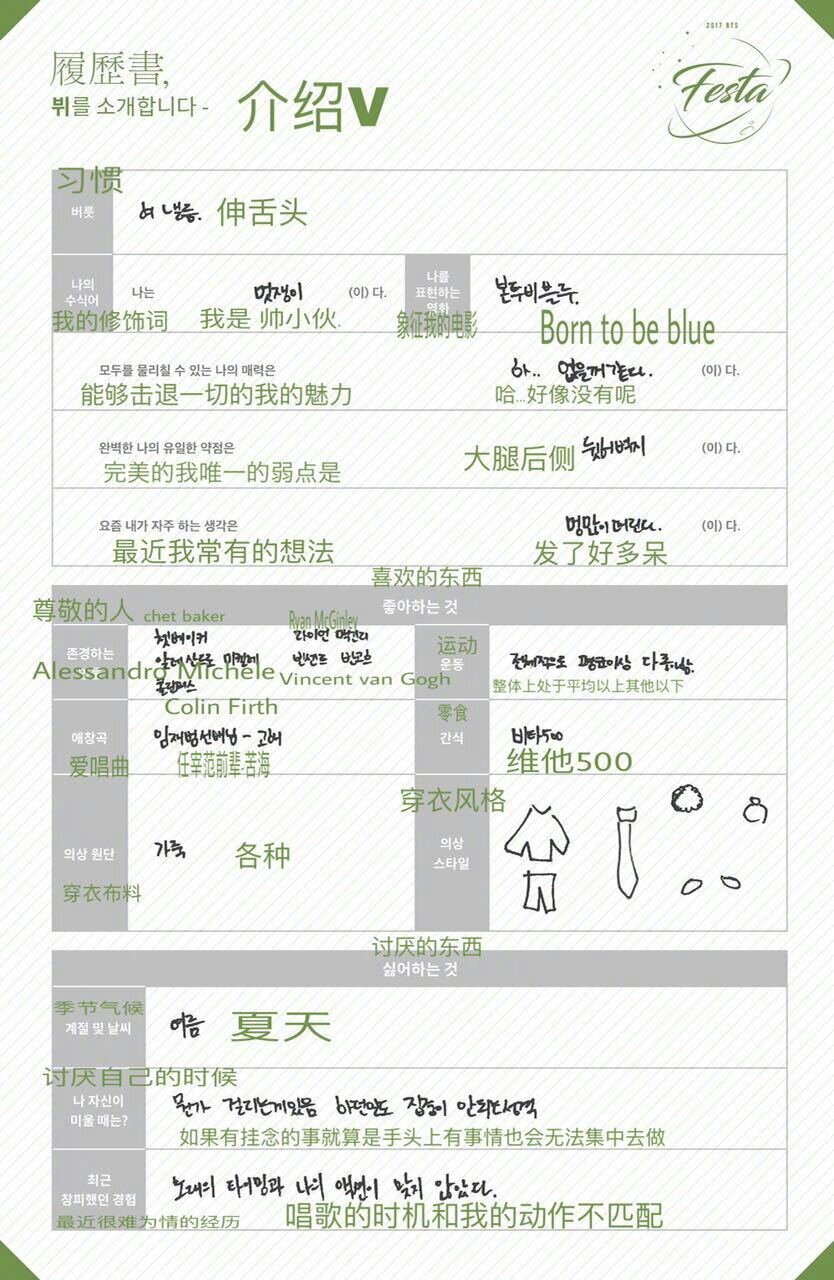 2017 BTS
Festa
履歷書,
뷔를 소개합니다 -
介绍V
习惯
버릇
혀 낼름.
伸舌头
나의
수식어
나는
멋쟁이
(이) 다.
나를
표현하는
영화
본투비블루.
我的修饰词
我是 帅小伙.
象征我的电影
Born to be blue
모두를 물리칠 수 있는 나의 매력은
하.. 없을꺼같다.
(이) 다.
能够击退一切的我的魅力
哈...好像没有呢
완벽한 나의 유일한 약점은
大腿后侧
뒷허벅지
(이) 다.
完美的我唯一的弱点是
요즘 내가 자주 하는 생각은
멍많이때린다.
(이) 다.
最近我常有的想法
发了好多呆
喜欢的东西
좋아하는 것
尊敬的人
chet baker
Ryan McGinley
존경하는
쳇베이커
라이언 맥긴리
알레산드로 미켈레
빈센트 반고흐
콜린퍼스
Alessandro Michele
Vincent van Gogh
Colin Firth
运动
운동
전체적으로 평균이상 다중하.
整体上处于平均以上其他以下
애창곡
임재범선배님 - 고해
爱唱曲
任宰范前辈-苦海
零食
간식
비타500
维他500
의상 원단
가죽
各种
穿衣布料
穿衣风格
의상
스타일
讨厌的东西
싫어하는 것
季节气候
계절 및 날씨
여름
夏天
讨厌自己的时候
나 자신이
미울 때는?
뭔가 걸리는게있음 하던일도 집중이 안되는성격
如果有挂念的事就算是手头上有事情也会无法集中去做
최근
창피했던 경험
노래의 타이밍과 나의 액션이 맞지 않았다.
最近很难为情的经历
唱歌的时机和我的动作不匹配